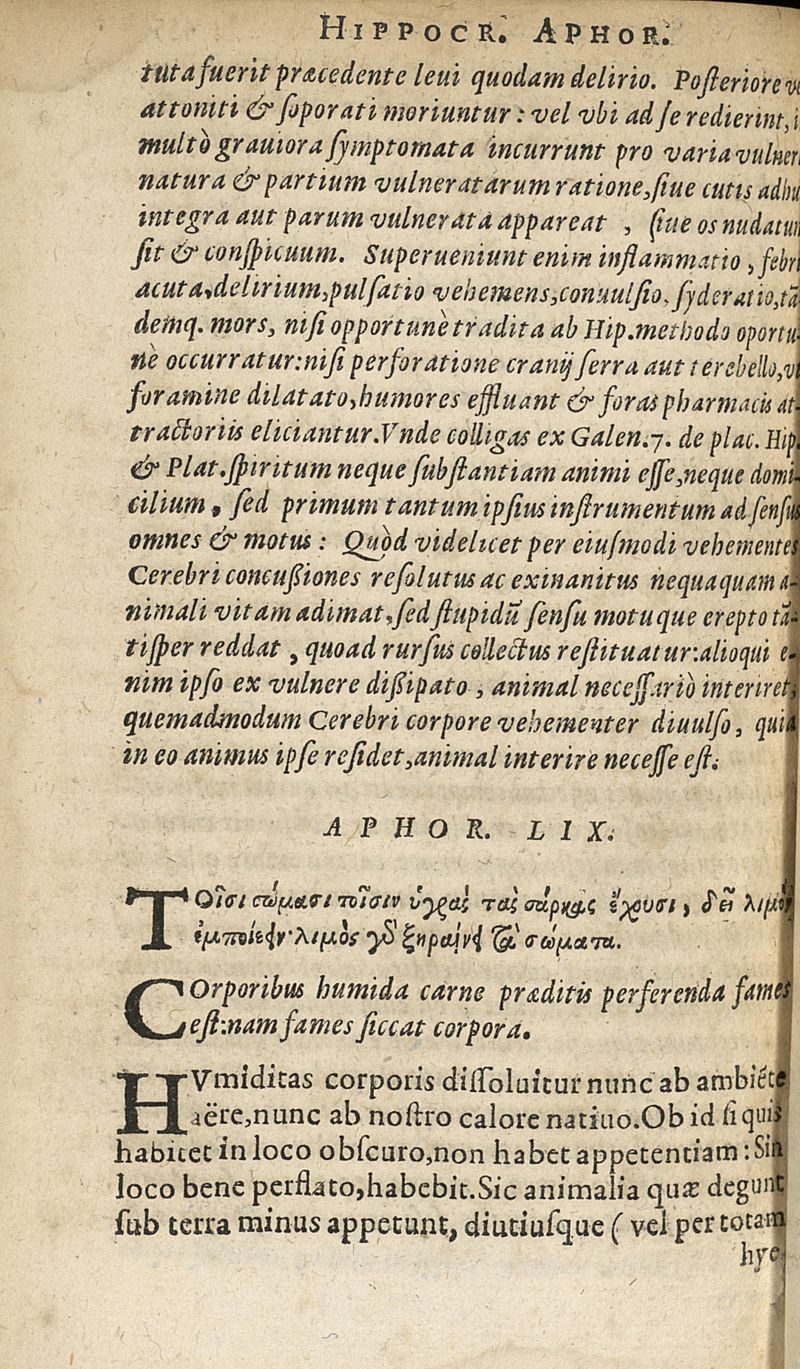 HIPPOCR. APHOR.
tuta fuerit præcedente leui quodam delirio. Posteriore
attoniti & soporati moriuntur: vel vbi ad se redierint,
multò grauiora symptomata incurrunt pro varia vulner
natura & partium vulneratarum ratione, siue cutis adhu
integra aut parum vulnerata appareat, siue os nudatum
sit & conspicuum. Superueniunt enim inflammatio, febri
acuta, delirium, pulsatio vehemens, conuulsio, syderatio, tã
demq. mors, nisi opportunè tradita ab Hip. methodo oportu-
nè occurratur: nisi perforatione cranij serra aut terebello, vt
foramine dilatato, humores effluant & foras pharmacis at-
tractoriis eliciantur. Vnde colligas ex Galen. 7. de plac. Hip.
& Plat. spiritum neque substantiam animi esse, neque domi-
cilium, sed primum tantum ipsius instrumentum ad sensus
omnes & motus: Quòd videlicet per eiusmodi vehementes
Cerebri concußiones resolutus ac exinanitus nequaquam a-
nimali vitam adimat, sed stupidũ sensu motuque erepto tã-
tisper reddat, quoad rursus collectus restituatur: alioqui e-
nim ipso ex vulnere dißipato, animal necessariò interiret,
quemadmodum Cerebri corpore vehementer diuulso, quia
in eo animus ipse residet, animal interire necesse est.
APHOR. LIX.
ΤΟῖσι σώμασι τοῖσιν ὑγρὰς τὰς σάρκας ἔχουσι, δεῖ λιμὸν
ἐμποιέειν· λιμὸς γὰρ ξηραίνει τὰ σώματα.
COrporibus humida carne præditis perferenda fames
est: nam fames siccat corpora.
HVmiditas corporis dissoluitur nunc ab ambiẽte
aëre, nunc ab nostro calore natiuo. Ob id si quis
habitet in loco obscuro, non habet appetentiam: Sin
loco bene perflato, habebit. Sic animalia quæ degunt
sub terra minus appetunt, diutiusque ( vel per totam
hye